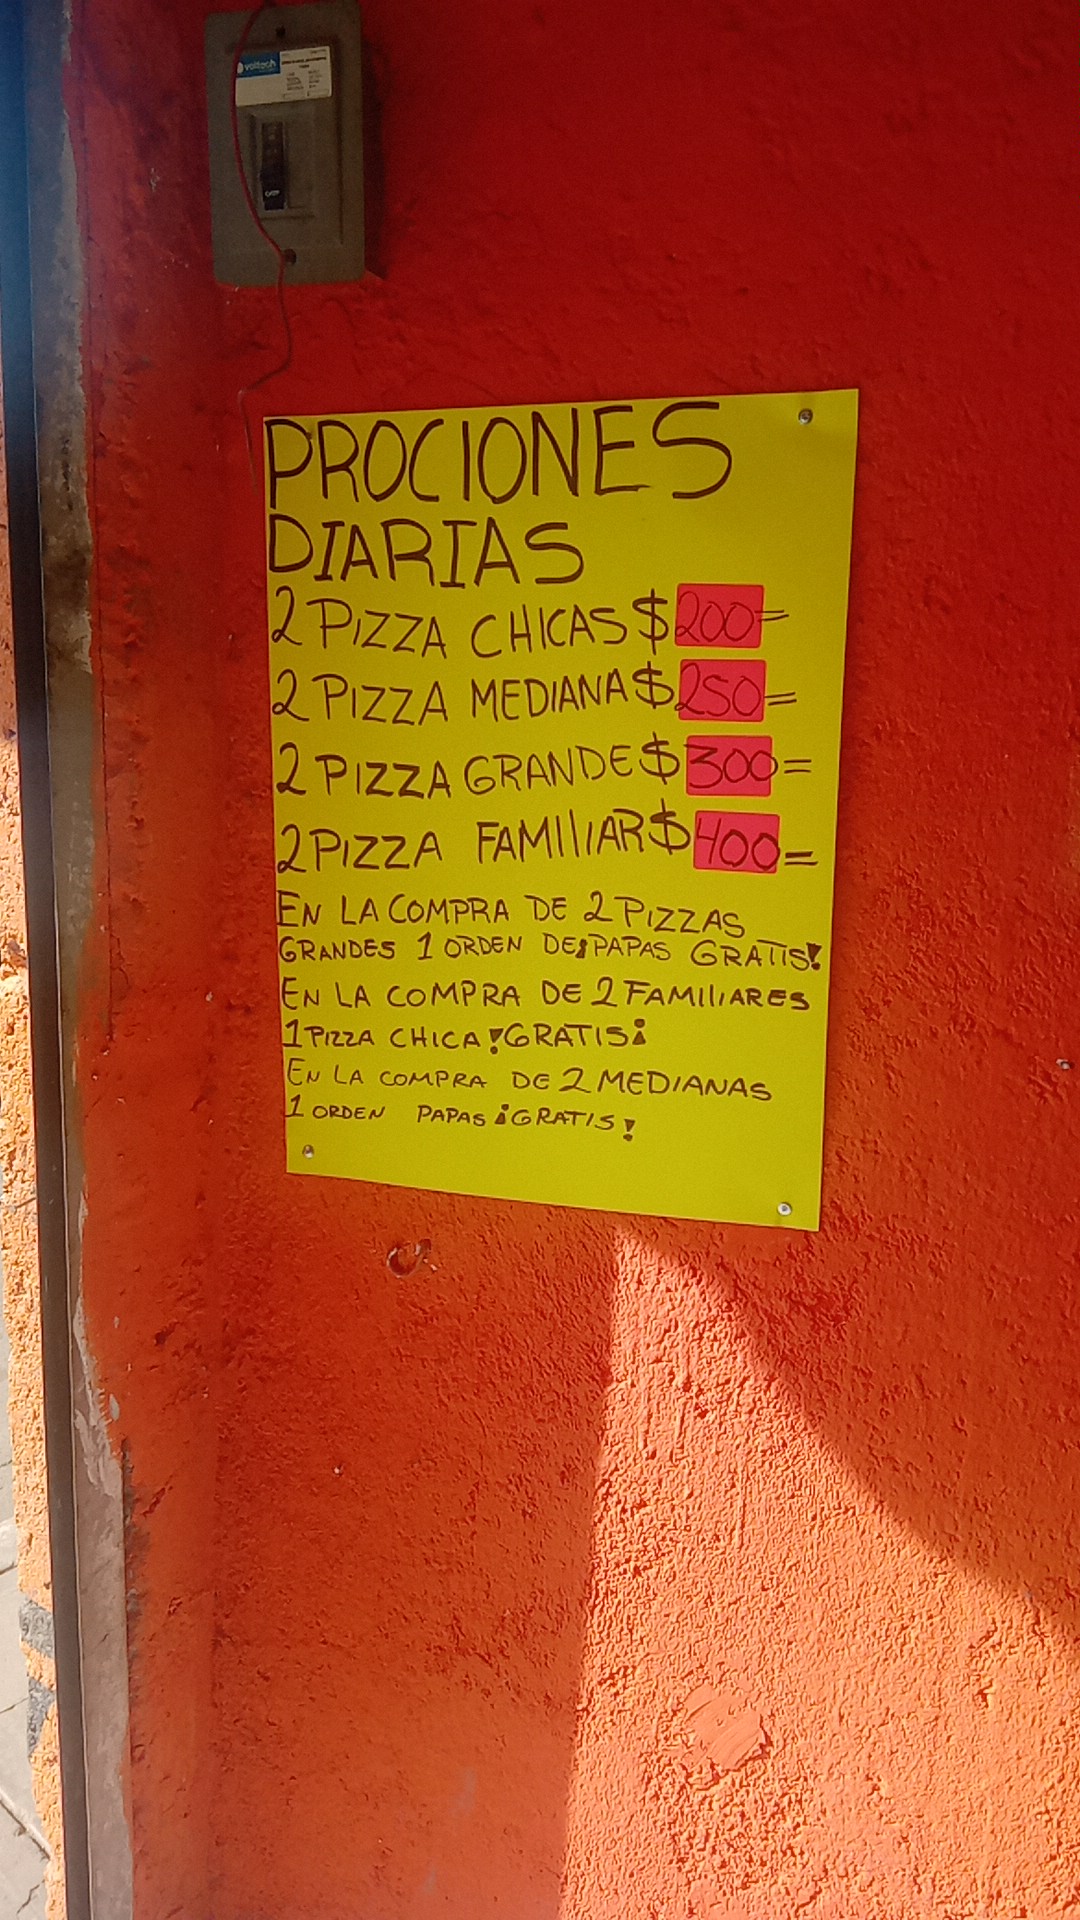 voltech
PROCIONES
DIARIAS
2 PIZZA CHICAS $200=
2 PIZZA MEDIANA $250=
2 PIZZA GRANDE $300=
2 PIZZA FAMILIAR $400=
EN LA COMPRA DE 2 PIZZAS
GRANDES 1 ORDEN DE¡PAPAS GRATIS!
EN LA COMPRA DE 2 FAMILIARES
1 PIZZA CHICA !GRATIS¡
EN LA COMPRA DE 2 MEDIANAS
1 ORDEN PAPAS ¡GRATIS!